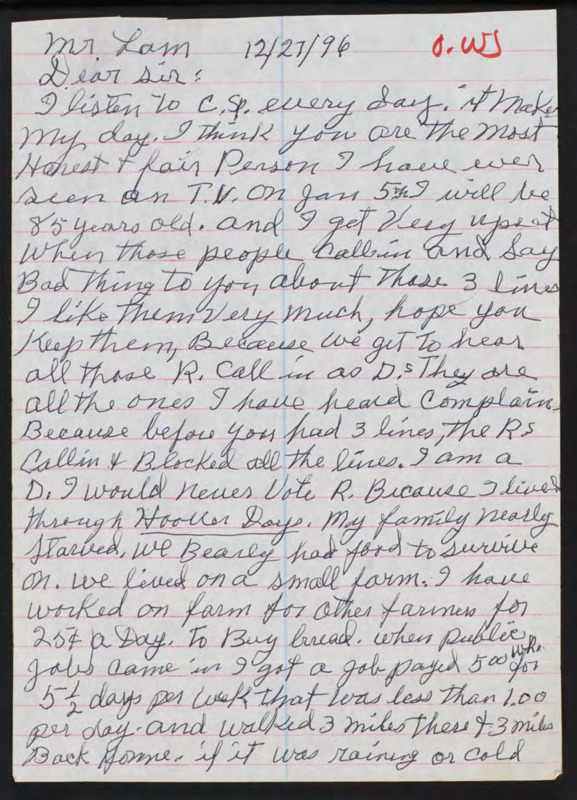 Mr. Lam 12/27/96 O. WS
Dear Sir:
I listen to C. Sp. every day. it Makes
My day. I think you are the Most
Honest & fair Person I have ever
seen on T.V. On Jan 5th I will be
85 years old. and I get Very upset
When those people Call in and Say
Bad thing to you about those 3 lines
I like them Very Much, hope you
Keep them, Because we get to hear
all those R. Call in as D.s They are
all the ones I have heard Complain.
Because before you had 3 lines, the Rs
Call in & Blocked all the lines. I am a
D. I would never Vote R. Because I lived
through Hoover Days. My family nearly
Starved. We Bearly had food to survive
on. we lived on a small farm. I have
worked on farm for other farmers for
25¢ a Day. to Buy bread. when public
Jobs came in I got a job payed 5.00 wk. for
5 1/2 days per week that was less than 1.00
per day. and walked 3 miles there & 3 miles
Back home. if it was raining or cold